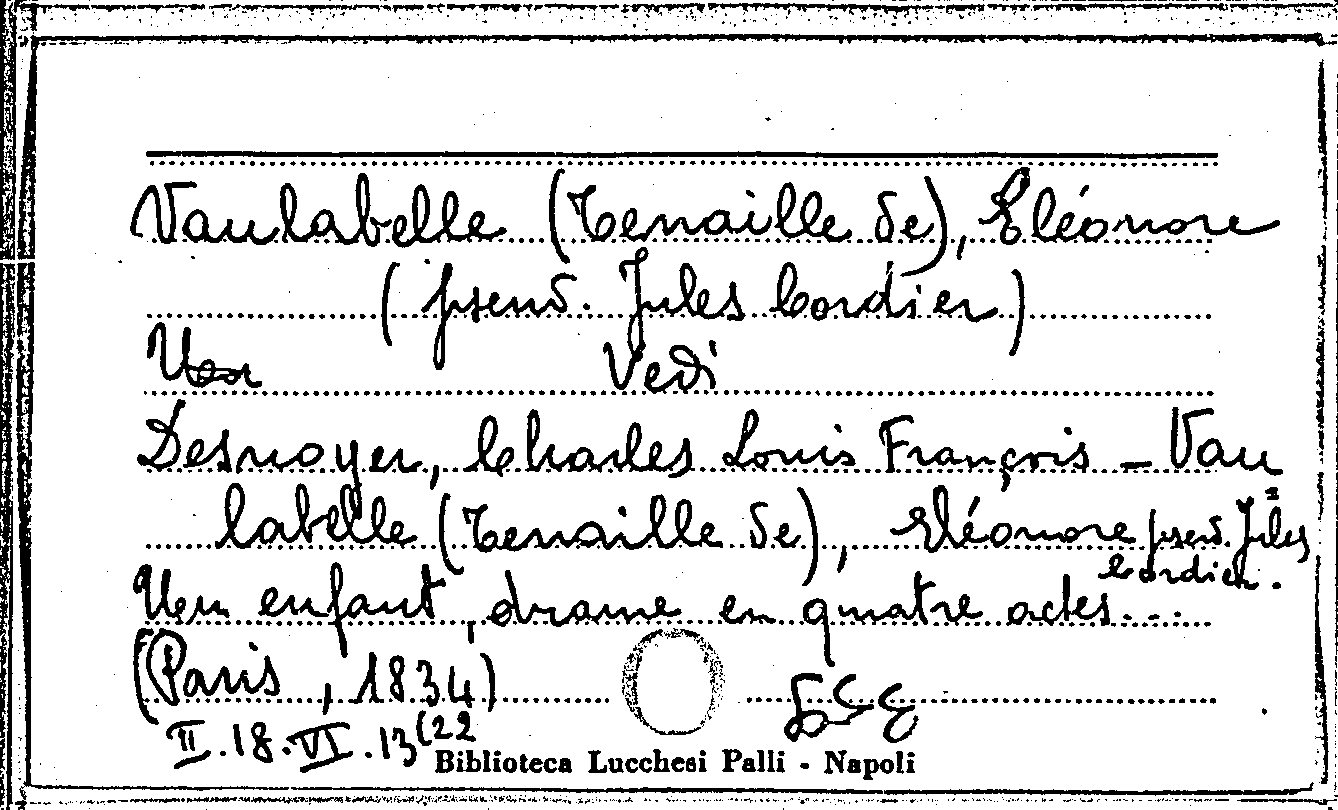 Vaulabelle (Tenaille de), Eléonore
(pseud. Jules Cordier)
Vedi
Desnoyer, Charles Louis François – Vau
labelle (Tenaille de), Eléonore pseud. Jules
Cordier.
Un enfant, drame en quatre actes...
(Paris, 1834)
II.18.VI.13(22
Biblioteca Lucchesi Palli - Napoli